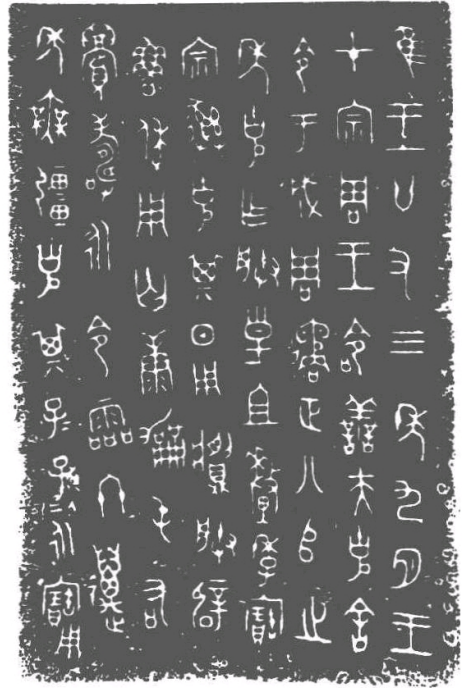 隹王廿又三年九月王
才宗周王命善夫克舍
令于成周遹正八𠂤之
年克乍朕皇且釐季寶
宗彝克其日用䵼朕辟
魯休用匃康勵屯右
眉壽永令霝冬邁
年無疆克其子子孫孫永寶用